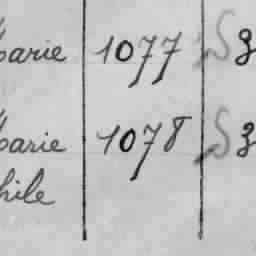 Marie 1077 S 3
Marie 1078 S 3
hile